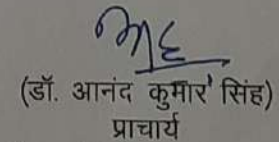 (डॉ. आनंद कुमार सिंह)
प्राचार्य